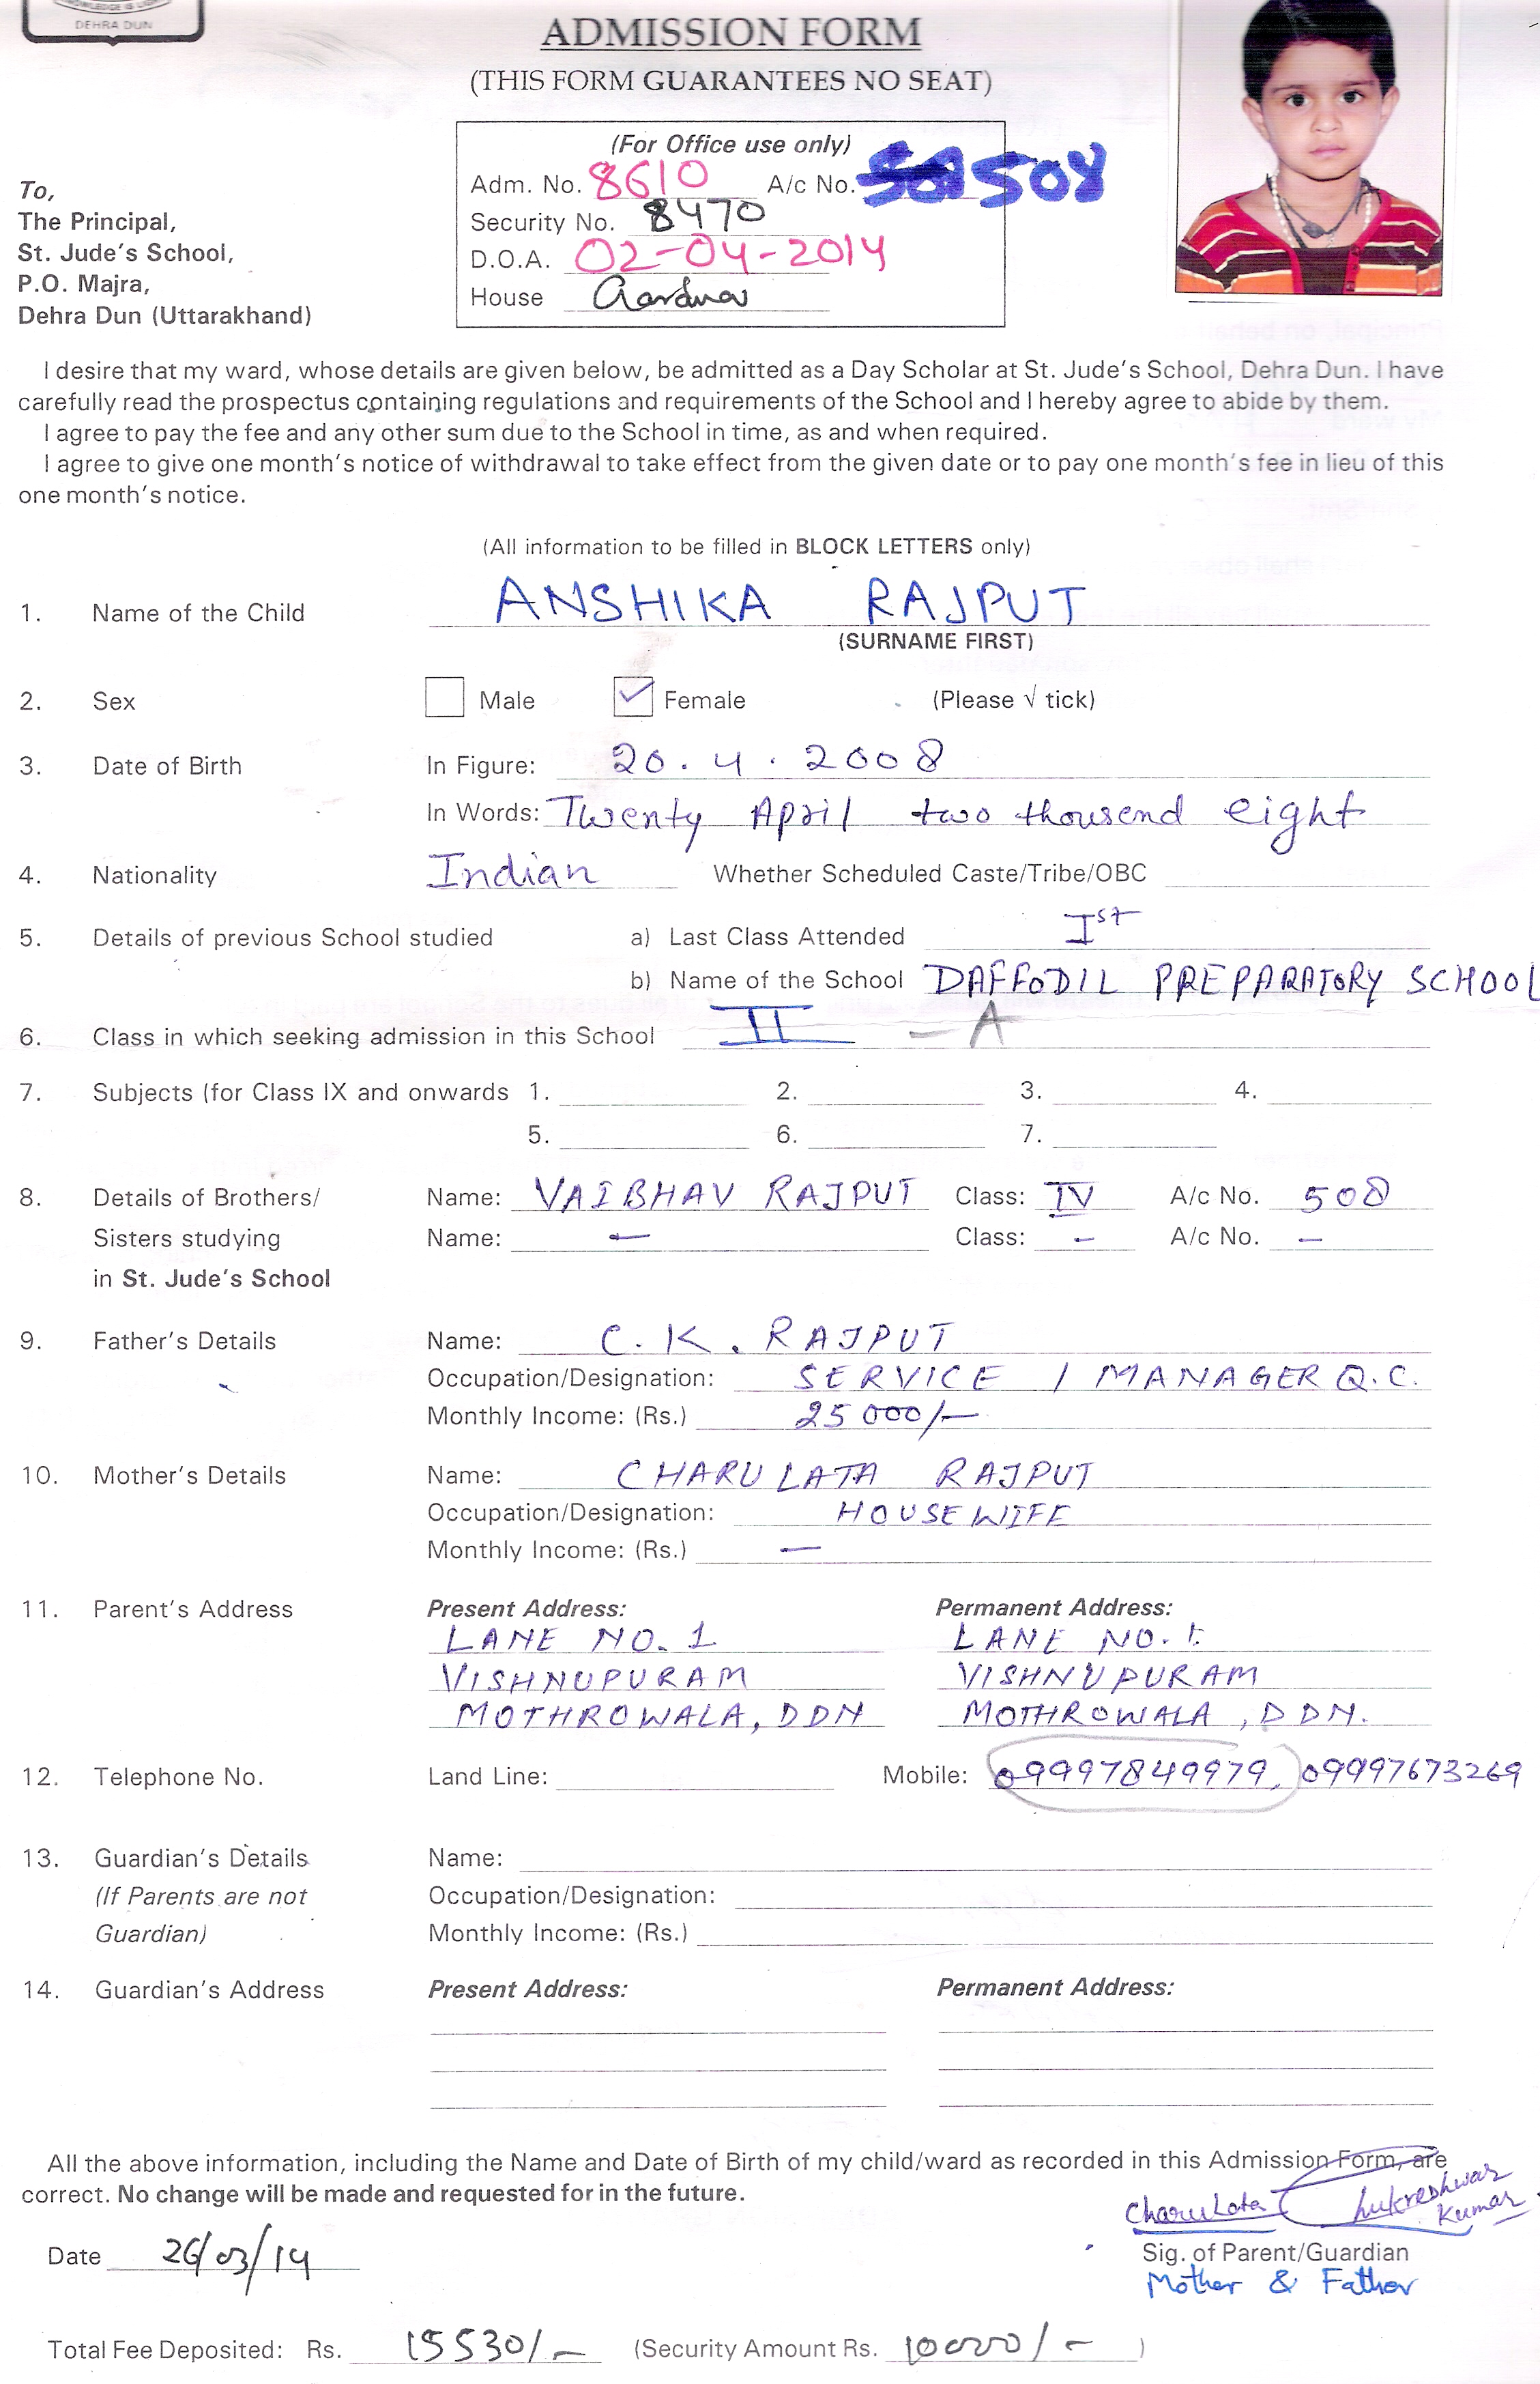 KNOWLEDGE IS LIGHT
DEHRA DUN
ADMISSION FORM
(THIS FORM GUARANTEES NO SEAT)
(For Office use only)
Adm. No. 8610 A/c No. 508
Security No. 8470
D.O.A. 02-04-2014
House
To,
The Principal,
St. Jude's School,
P.O. Majra,
Dehra Dun (Uttarakhand)
I desire that my ward, whose details are given below, be admitted as a Day Scholar at St. Jude's School, Dehra Dun. I have
carefully read the prospectus containing regulations and requirements of the School and I hereby agree to abide by them.
I agree to pay the fee and any other sum due to the School in time, as and when required.
I agree to give one month's notice of withdrawal to take effect from the given date or to pay one month's fee in lieu of this
one month's notice.
(All information to be filled in BLOCK LETTERS only)
1. Name of the Child ANSHIKA RAJPUT
(SURNAME FIRST)
2. Sex Male ✓ Female (Please √ tick)
3. Date of Birth In Figure: 20.4.2008
In Words: Twenty April two thousend eight
4. Nationality Indian Whether Scheduled Caste/Tribe/OBC
5. Details of previous School studied a) Last Class Attended Ist
b) Name of the School DAFFODIL PREPARATORY SCHOOL
6. Class in which seeking admission in this School II - A
7. Subjects (for Class IX and onwards 1. 2. 3. 4.
5. 6. 7.
8. Details of Brothers/ Name: VAIBHAV RAJPUT Class: IV A/c No. 508
Sisters studying Name: - Class: - A/c No. -
in St. Jude's School
9. Father's Details Name: C.K. RAJPUT
Occupation/Designation: SERVICE / MANAGER Q.C.
Monthly Income: (Rs.) 25000/-
10. Mother's Details Name: CHARULATA RAJPUT
Occupation/Designation: HOUSEWIFE
Monthly Income: (Rs.) -
11. Parent's Address Present Address: Permanent Address:
LANE NO. 1 LANE NO. 1.
VISHNUPURAM VISHNUPURAM
MOTHROWALA, DDN MOTHROWALA, DDN.
12. Telephone No. Land Line: Mobile: 09997849979, 09997673269
13. Guardian's Details Name:
(If Parents are not Occupation/Designation:
Guardian) Monthly Income: (Rs.)
14. Guardian's Address Present Address: Permanent Address:
All the above information, including the Name and Date of Birth of my child/ward as recorded in this Admission Form, are
correct. No change will be made and requested for in the future.
CharuLata Kumar
Date 26/03/14 Sig. of Parent/Guardian
Mother & Father
Total Fee Deposited: Rs. 15530/- (Security Amount Rs. 10000/- )